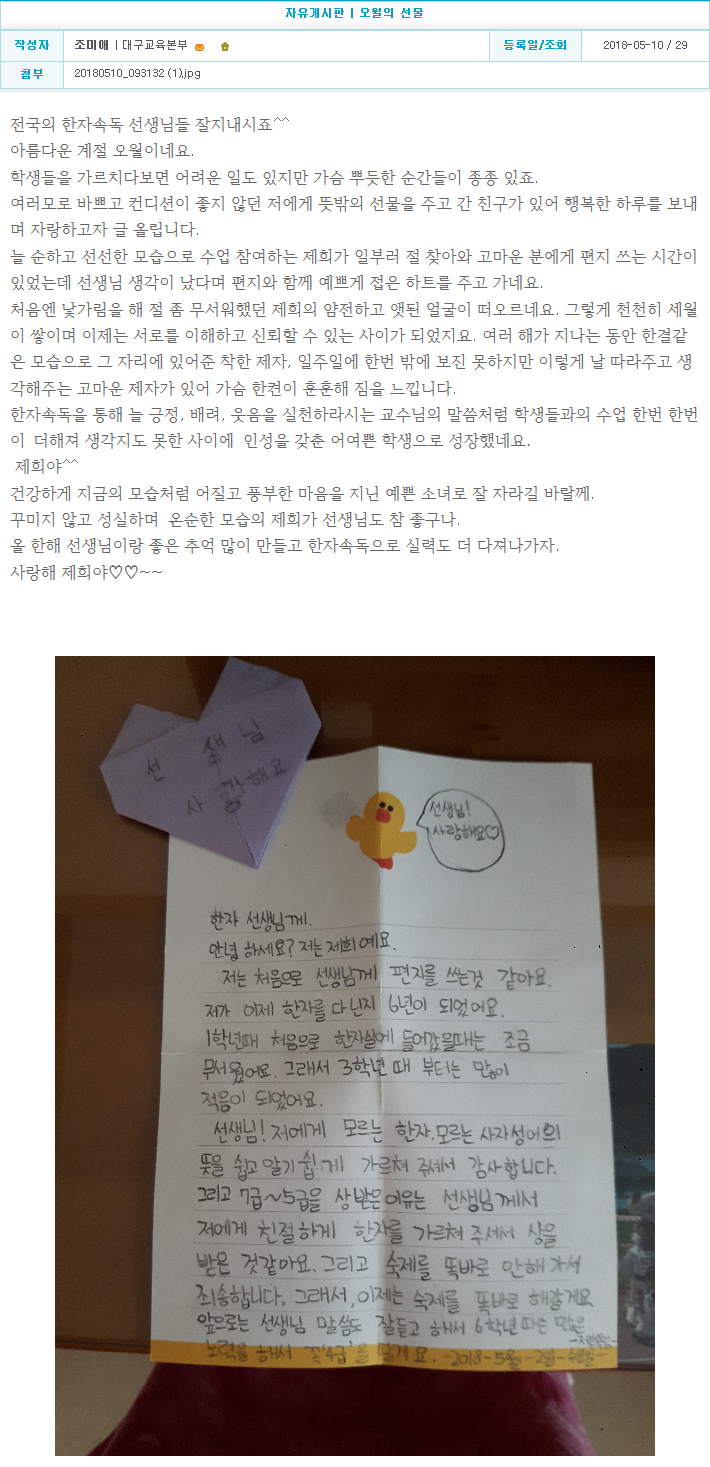 자유게시판 | 오월의 선물
작성자 조미애 | 대구교육본부 등록일/조회 2018-05-10 / 29
첨부 20180510_093132 (1).jpg
전국의 한자속독 선생님들 잘지내시죠^^
아름다운 계절 오월이네요.
학생들을 가르치다보면 어려운 일도 있지만 가슴 뿌듯한 순간들이 종종 있죠.
여러모로 바쁘고 컨디션이 좋지 않던 저에게 뜻밖의 선물을 주고 간 친구가 있어 행복한 하루를 보내
며 자랑하고자 글 올립니다.
늘 순하고 선선한 모습으로 수업 참여하는 제희가 일부러 절 찾아와 고마운 분에게 편지 쓰는 시간이
있었는데 선생님 생각이 났다며 편지와 함께 예쁘게 접은 하트를 주고 가네요.
처음엔 낯가림을 해 절 좀 무서워했던 제희의 얌전하고 앳된 얼굴이 떠오르네요. 그렇게 천천히 세월
이 쌓이며 이제는 서로를 이해하고 신뢰할 수 있는 사이가 되었지요. 여러 해가 지나는 동안 한결같
은 모습으로 그 자리에 있어준 착한 제자, 일주일에 한번 밖에 보진 못하지만 이렇게 날 따라주고 생
각해주는 고마운 제자가 있어 가슴 한켠이 훈훈해 짐을 느낍니다.
한자속독을 통해 늘 긍정, 배려, 웃음을 실천하라시는 교수님의 말씀처럼 학생들과의 수업 한번 한번
이 더해져 생각지도 못한 사이에 인성을 갖춘 어여쁜 학생으로 성장했네요.
제희야^^
건강하게 지금의 모습처럼 어질고 풍부한 마음을 지닌 예쁜 소녀로 잘 자라길 바랄께.
꾸미지 않고 성실하며 온순한 모습의 제희가 선생님도 참 좋구나.
올 한해 선생님이랑 좋은 추억 많이 만들고 한자속독으로 실력도 더 다져나가자.
사랑해 제희야♡♡~~
선생님
사랑해요
선생님!
사랑해요♡
한자 선생님께.
안녕 하세요? 저는 제희예요.
저는 처음으로 선생님께 편지를 쓰는것 같아요.
저가 이제 한자를 다닌지 6년이 되었어요.
1학년때 처음으로 한자실에 들어갔을때는 조금
무서웠어요. 그래서 3학년 때 부터는 많이
적응이 되었어요.
선생님! 저에게 모르는 한자, 모르는 사자성어의
뜻을 쉽고 알기 쉽게 가르쳐 주셔서 감사합니다.
그리고 7급~5급을 상받은 이유는 선생님께서
저에게 친절하게 한자를 가르쳐 주셔서 상을
받은 것같아요. 그리고 숙제를 똑바로 안해가서
죄송합니다. 그래서, 이제는 숙제를 똑바로 해갈게요
앞으로는 선생님 말씀도 잘듣고 해서 6학년 때는 많은
노력을 해서 꼭 '4급'을 딸게요. -2018-5월-2일-수요일-